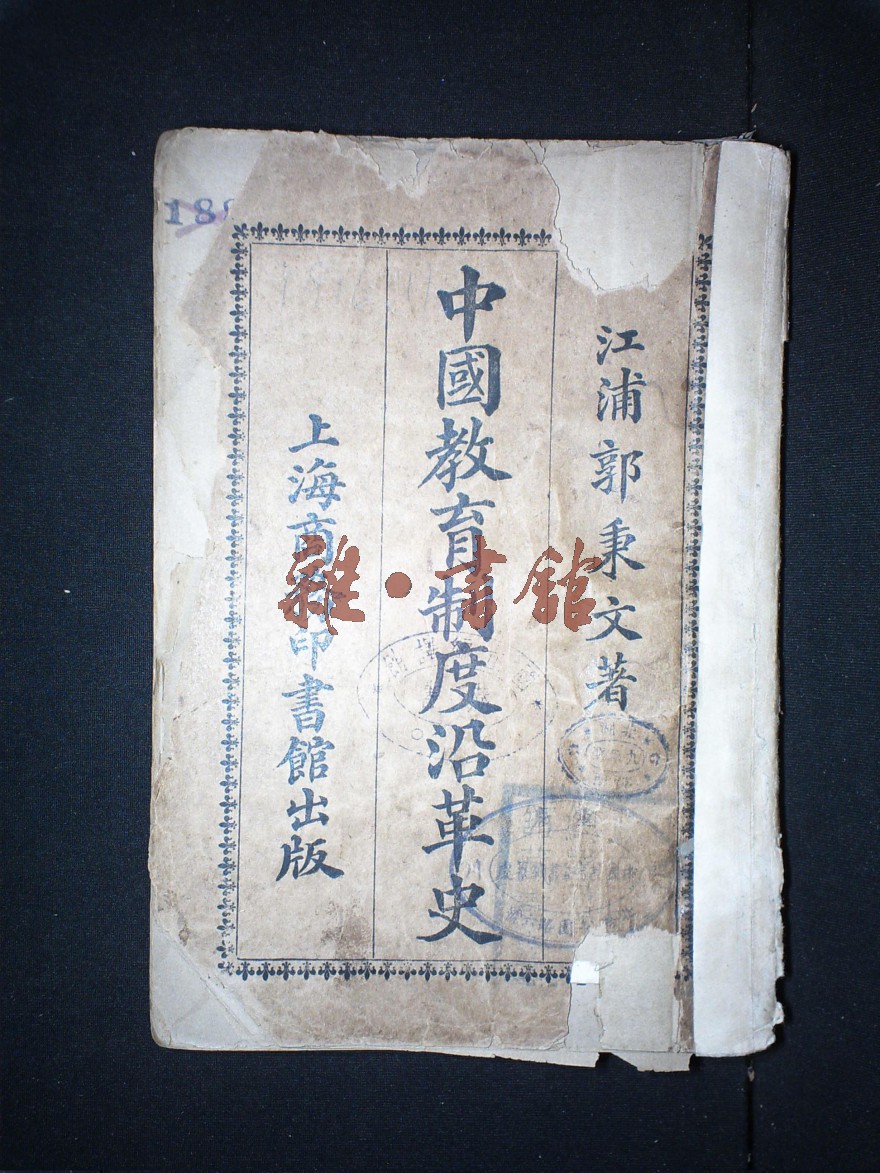 江浦郭秉文著
中國教育制度沿革史
上海商務印書館出版
雜·書館
188